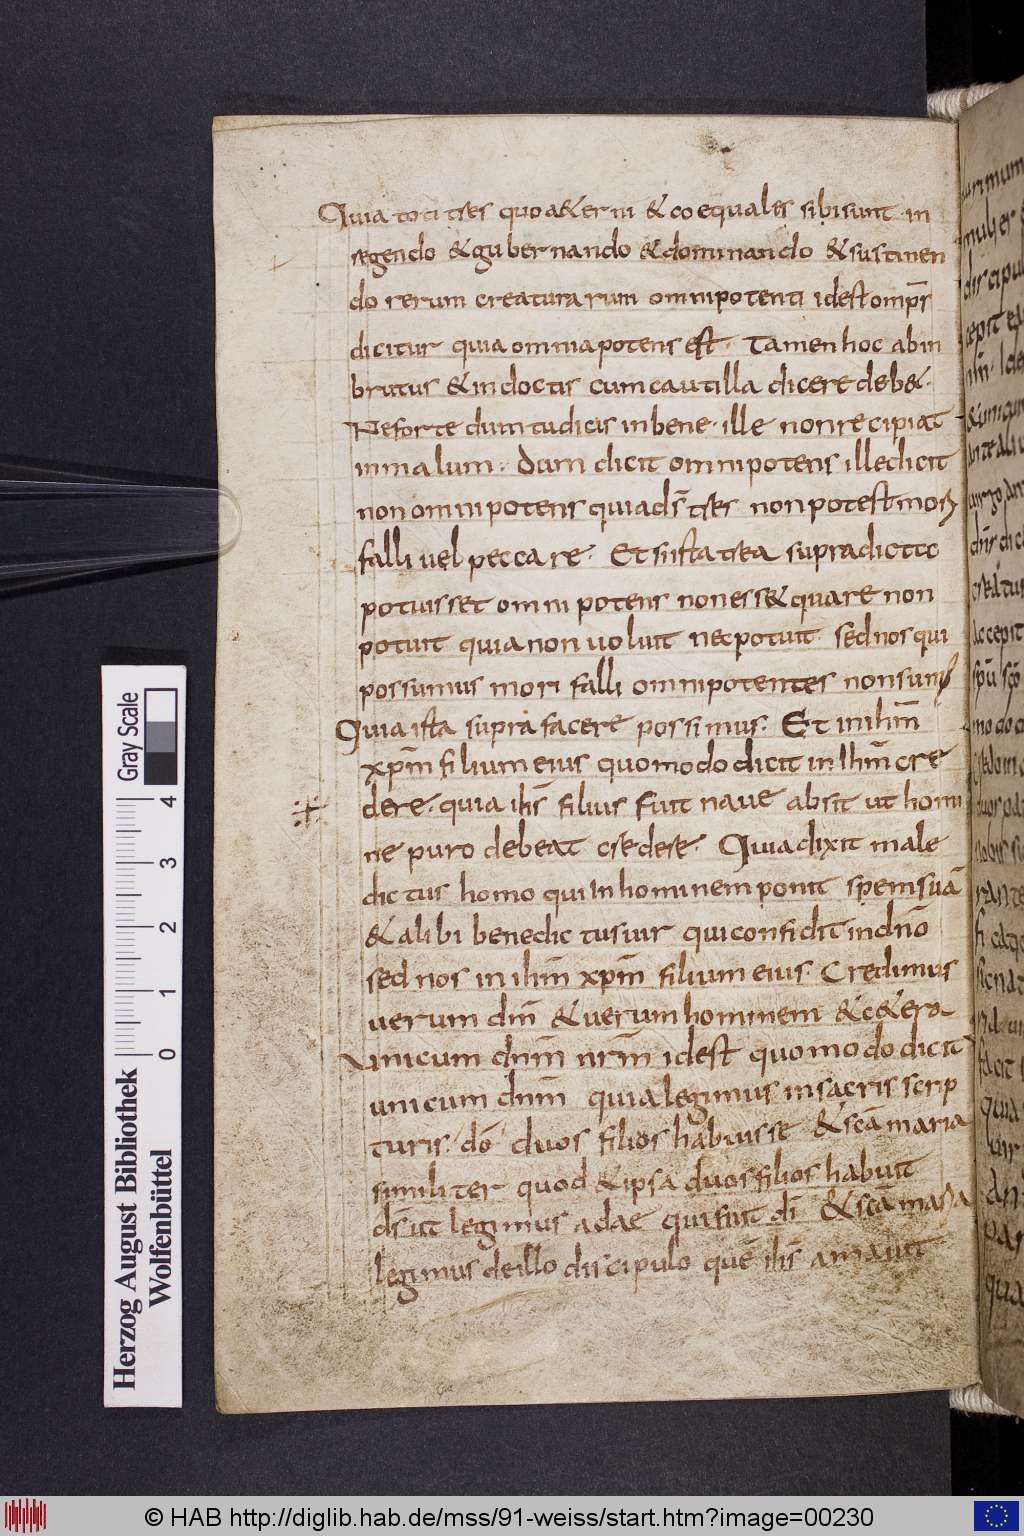 Quia toti tres quo a&erni & co equales sibi sunt in
regendo & gubernando & dominando & sustinen
do rerum creaturarum omnipotenti idest omp̄s
dicitur quia omnia potens est. Tamen hoc ab in
brutus & indoctis cum cautilla dicere deb&.
Ne forte dum tu dicis in bene. ille non recipiat
in malum. Dum dicit omnipotens ille dicit
non omnipotens quia ds̄ tres non potest mori
falli uel peccare. Et si ista trea supradicto
potuisset omnipotens non ess& quare non
potuit quia non uoluit nec potuit. sed nos qui
possumus mori falli omnipotentes non sum
Quia ista supra facere possimus. Et in ihm̄
xpm̄ filium eius quomodo dicit in Ihm̄ cre
dere. quia ihs̄ filius fuit naue absit ut homi
ne puro debeat credere. Quia dixit male
dictus homo qui in hominem ponit spem suā
& alibi benedictus uir qui confidit in dnō
sed nos in ihm̄ xpm̄ filium eius. Credimus
uerum dm̄ & uerum hominem & c&era
Unicum dnm̄ nrm̄ idest quomodo dicit
unicum dnm̄ quia legimus in sacris scrip
turis. dō duos filios habuisse & scā maria
similiter quod & ipsa duos filios habuit
ds̄ ut legimus adae qui fuit dī & scā maria
legimus de illo discipulo quē ihs̄ amauit
Gray Scale
4
3
2
1
0
Herzog August Bibliothek
Wolfenbüttel
© HAB http://diglib.hab.de/mss/91-weiss/start.htm?image=00230